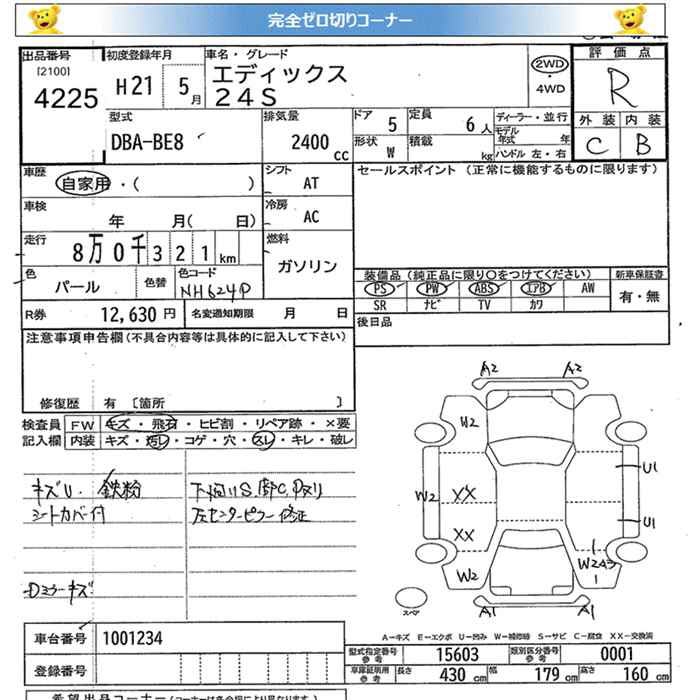 完全ゼロ切りコーナー
出品番号 初度登録年月 車名・グレード 評価点
[2100] H21 5月 エディックス 2WD ・ 4WD R
4225 24S
型式 排気量 ドア 5 定員 6人 ディーラー・並行 外装 内装
DBA-BE8 2400cc 形状 W 積載 kg モデル年式 年 C B
ハンドル 左・右
車歴 自家用・( ) シフト AT セールスポイント (正常に機能するものに限ります)
車検 年 月( 日) 冷房 AC
走行 8万0千321km 燃料 ガソリン
色 パール 色替 色コード NH624P 装備品(純正品に限り○をつけてください) 新車保証書
PS PW ABS エアB AW 有・無
SR ナビ TV カワ
R券 12,630円 名変通知期限 月 日 後日品
注意事項申告欄(不具合内容等は具体的に記入して下さい)
修復歴 有 〔箇所 〕
検査員 FW キズ・飛石・ヒビ割・リペア跡・×要
記入欄 内装 キズ・汚レ・コゲ・穴・スレ・キレ・破レ
キズU. 鉄粉
シートカバー付 左センターピラー修正
Dミラーキズ
A2 A2
W2
U1
W2 XX
XX U1
W2 W2
スペア A1 A1
A-キズ E-エクボ U-凹み W-補修跡 S-サビ C-腐食 XX-交換済
車台番号 1001234 型式指定番号 参考 15603 類別区分番号 参考 0001
登録番号 車庫証明用 参考 長さ 430cm 幅 179cm 高さ 160cm
希望出品コーナー